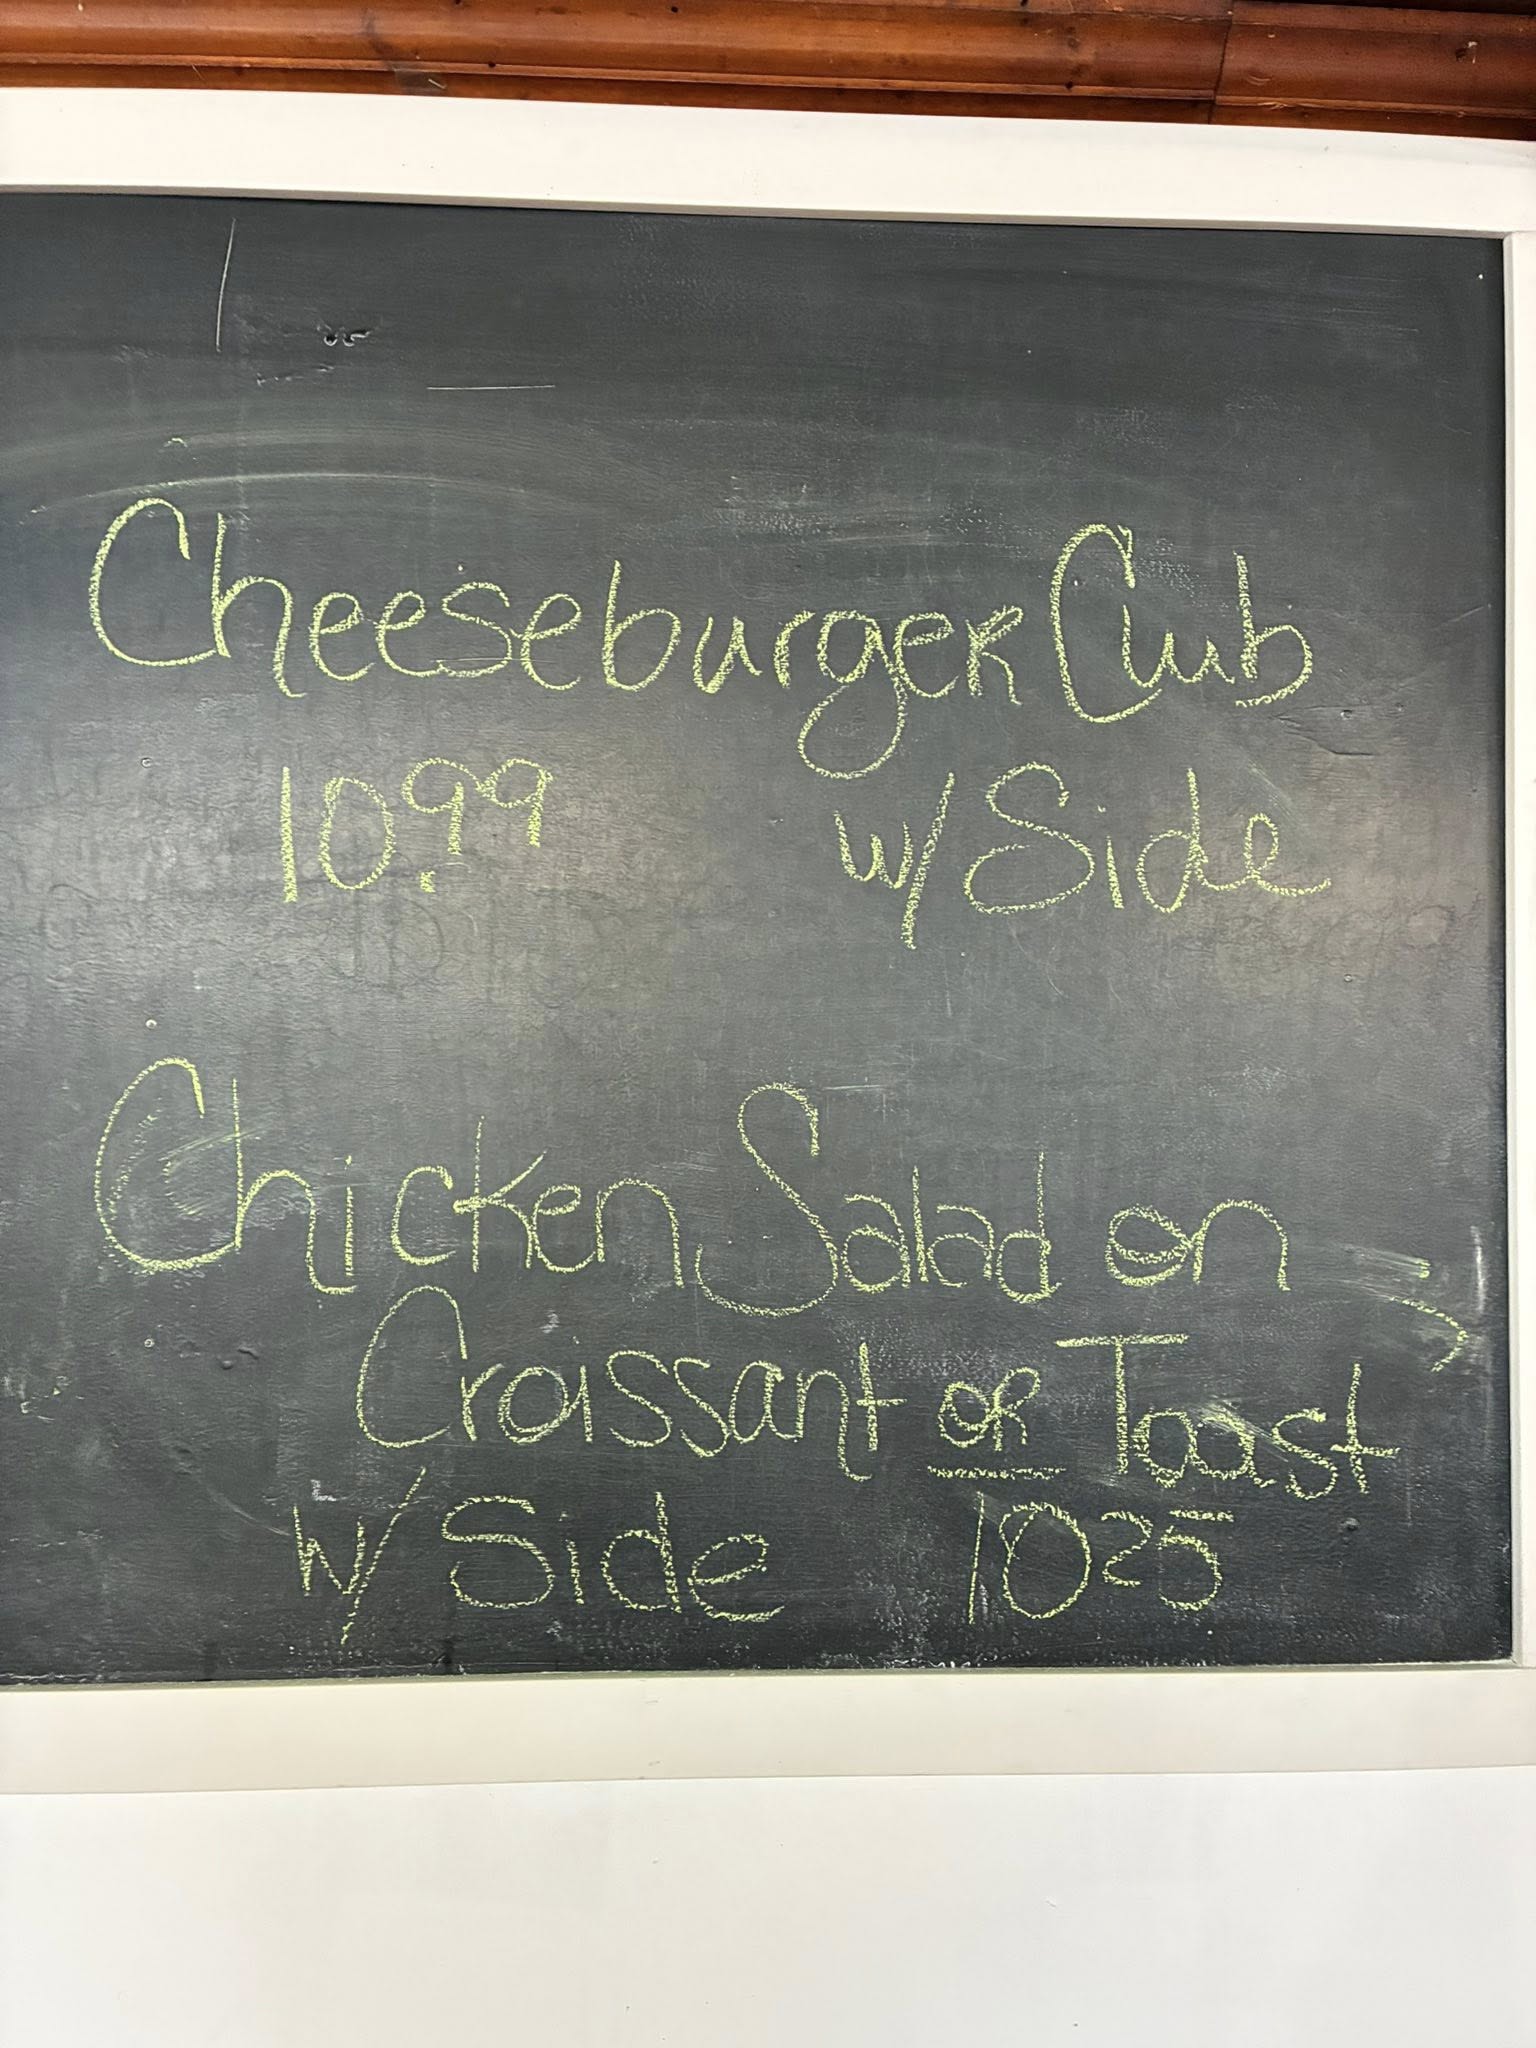 Cheeseburger Club
10.99 w/ Side
Chicken Salad on
Croissant OR Toast
w/ Side 10 25